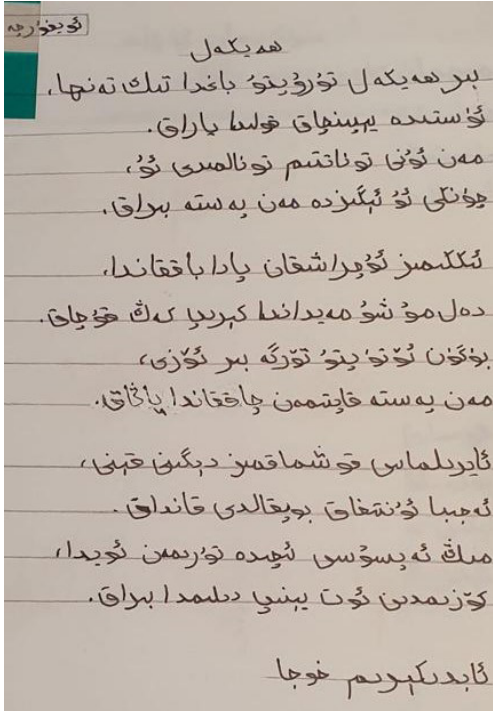 ئۇيغۇرچە
ھەيكەل
بىر ھەيكەل تۇرۇپتۇ باغدا تىك تەنھا،
ئۈستىدە يېپىنچاق قولىدا ياراق.
مەن ئۇنى تونۇتتىم تونالمىدى ئۇ،
چۈنكى ئۇ ئېگىزدە مەن پەستە بىراق.
ئىككىمىز ئۇچراشقان پادا باققاندا،
دەل مۇشۇ مەيداندا كېرىپ كەڭ قۇچاق.
بۈگۈن ئۆتۈپتۇ تۆرگە بىر ئۆزى،
مەن پەستە قاپتىمەن چاققاندا پاڭاق.
ئايرىلماس قوشماقمىز دېگىنى قېنى،
ئەجىبا ئۇنتغاق بوپقالدى قانداق.
مىڭ ئەپسۇسى ئىچىدە تۇرىمەن ئويدا،
كۆزىمدىن ئوت يېنىپ دىلىمدا بىراق.
ئابدىكېرىم خوجا